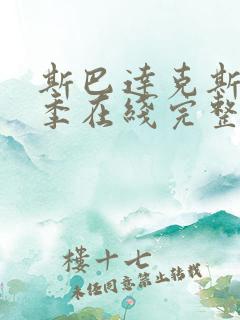 斯巴达克斯
季在线完整
楼十七
未经同意禁止转载